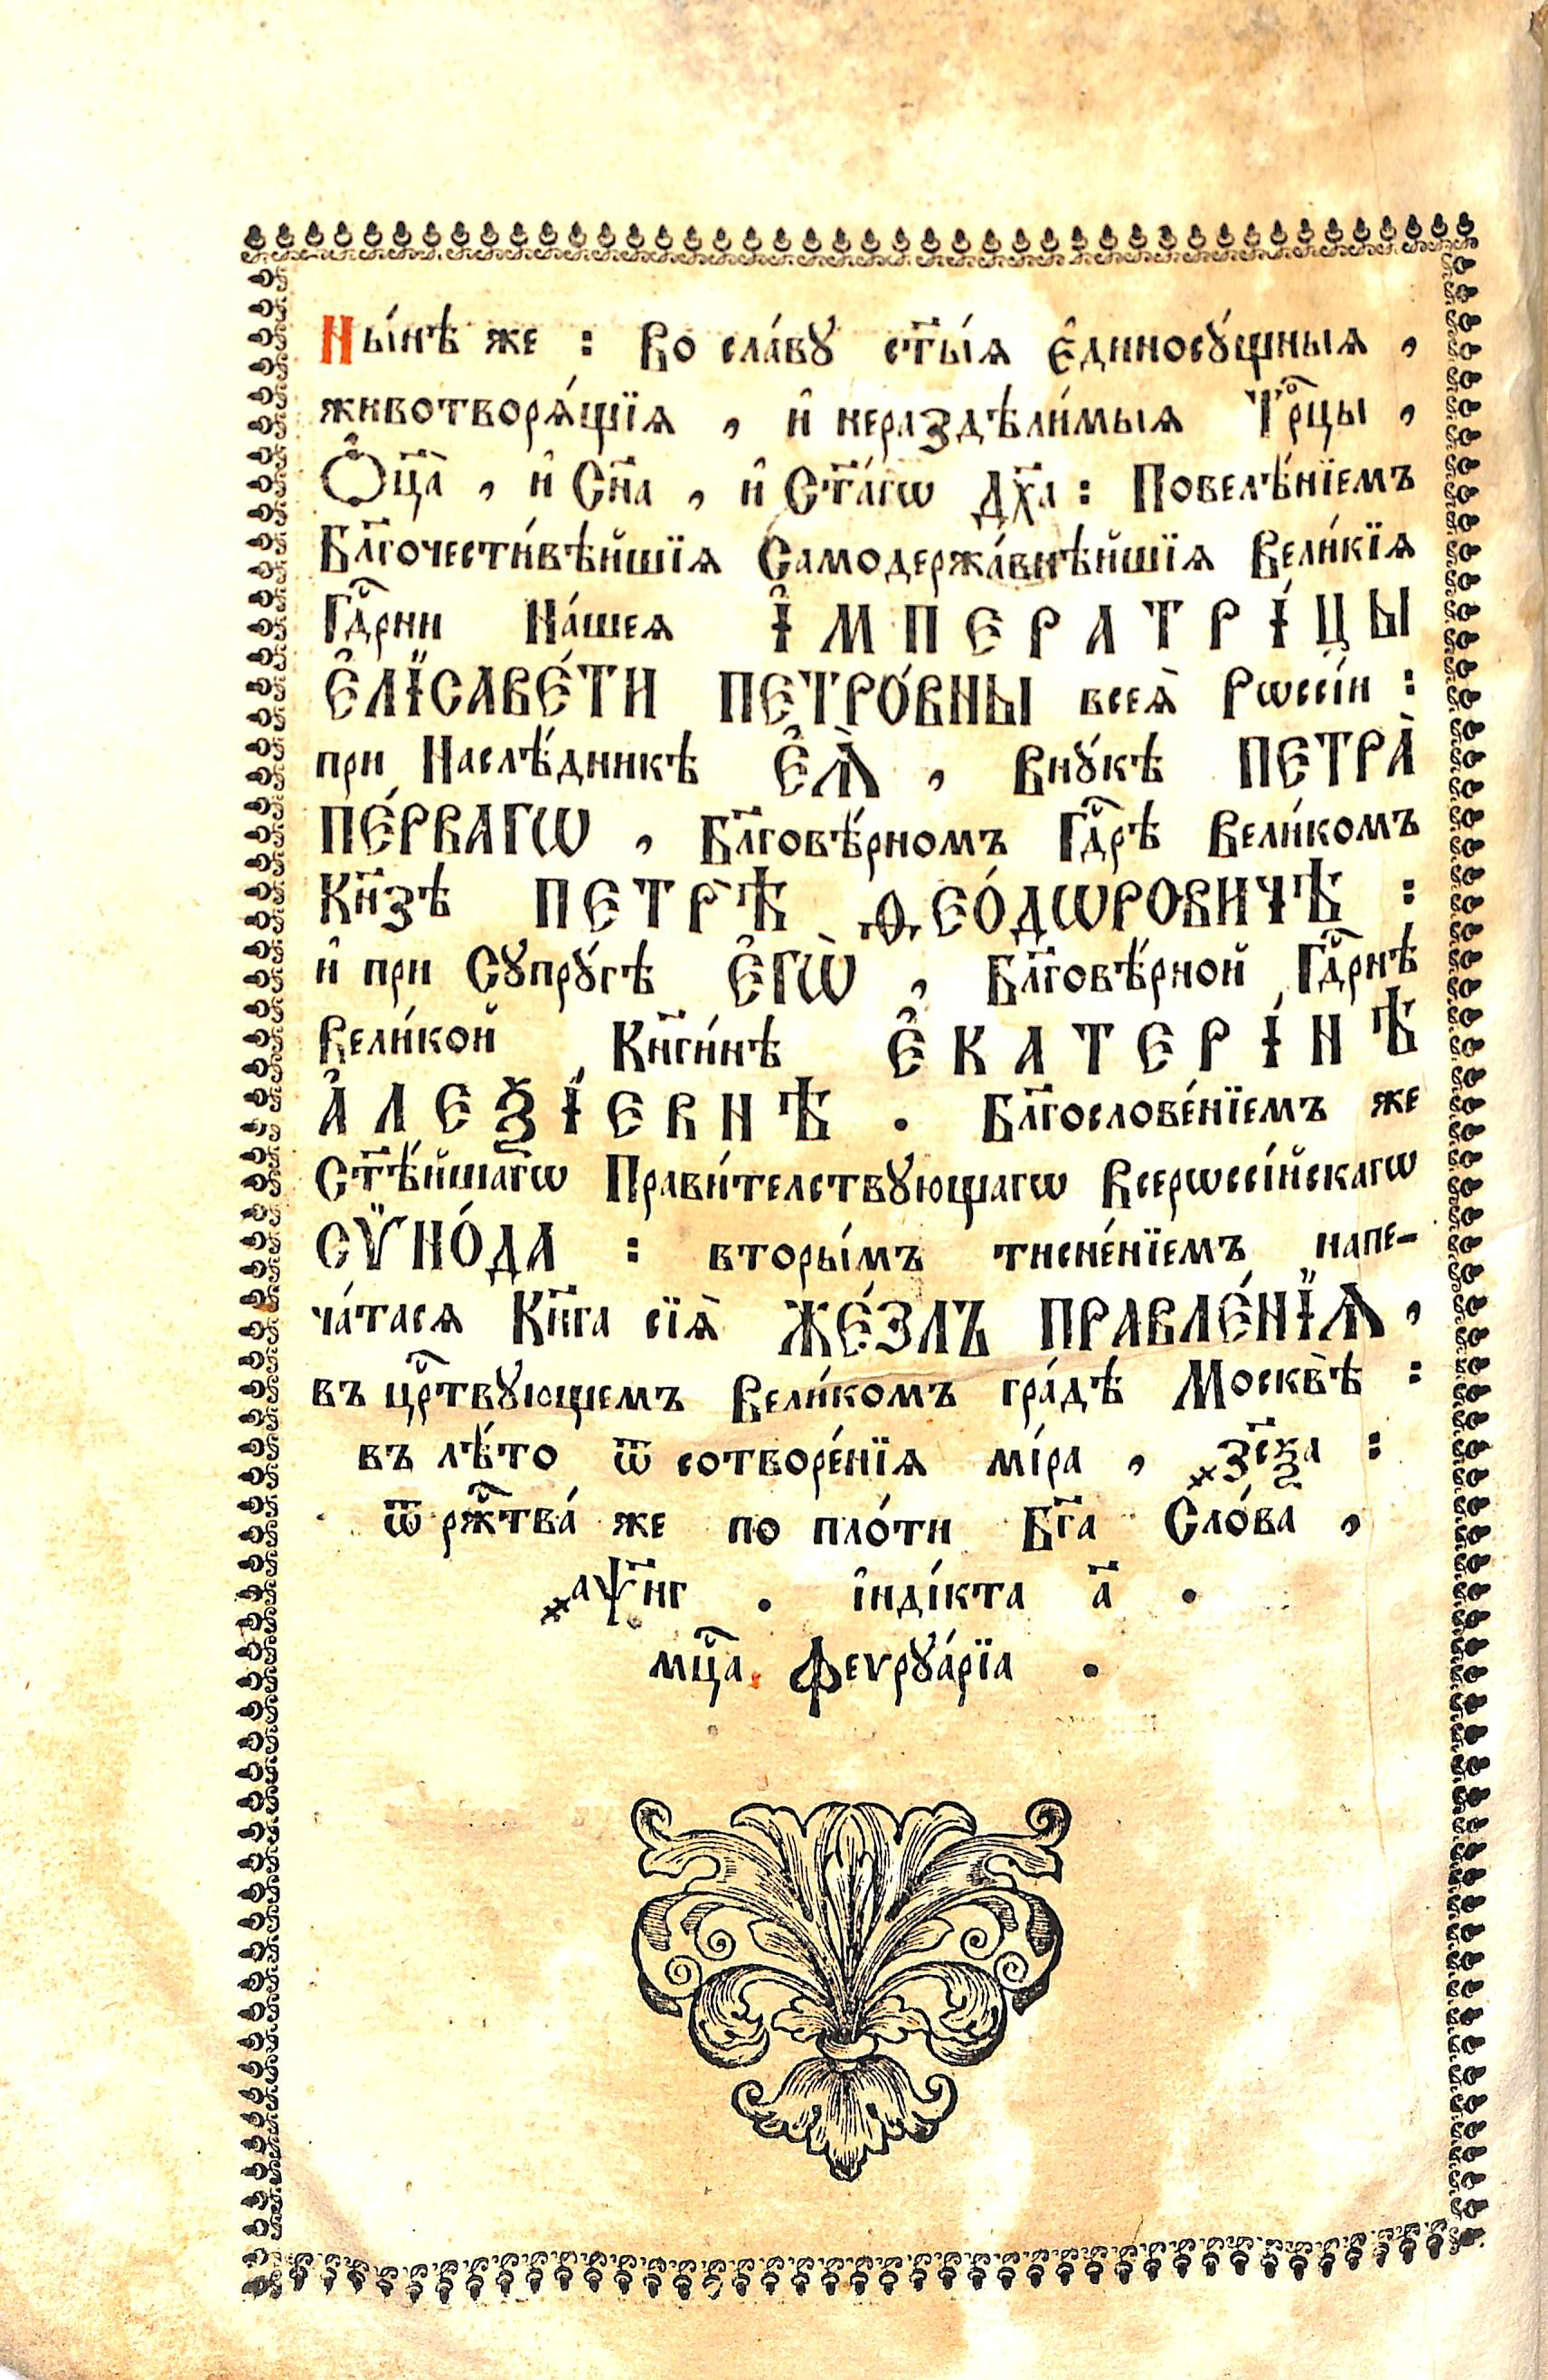 Ны́нѣ же : Во сла́вꙋ ст҃ы́ѧ є҆диносꙋ́щныѧ ,
животворѧ́щїѧ , и҆ нераздѣли́мыѧ Трⷪ҇цы ,
Ѻ҆ц҃а̀ , и҆ Сн҃а , и҆ Ст҃а́гѡ Дх҃а : Повелѣ́нїемъ
Бл҃гочести́вѣйшїѧ Самодержа́внѣйшїѧ Вели́кїѧ
Гдⷭ҇рни На́шеѧ І҆МПЕРАТРІ́ЦЫ
Є҆ЛЇСАВЕ́ТИ ПЕТРО́ВНЫ всеѧ̀ Рѡссі́и :
при Наслѣ́дникѣ Є҆Ѧ̀ , Внꙋ́кѣ ПЕТРА̀
ПЕ́РВАГѠ , Бл҃говѣ́рномъ Гдⷭ҇рѣ Вели́комъ
Кн҃зѣ ПЕТРѢ̀ Ѳ҆ЕО́ДѠРОВИЧѢ :
и҆ при Сꙋпрꙋ́гѣ Є҆ГѠ̀ , Бл҃говѣ́рной Гдⷭ҇рнѣ
Вели́кой Кн҃ги́нѣ Є҆КАТЕРІ́НѢ
А҆ЛЕѮІ́ЕВНѢ . Бл҃гослове́нїемъ же
Ст҃ѣ́йшагѡ Прави́телствꙋющагѡ Всерѡссі́йскагѡ
СѶНО́ДА : вторы́мъ тисне́нїемъ напе-
ча́тасѧ Кн҃га сїѧ̀ ЖЕ́ЗЛЪ ПРАВЛЕ́НЇѦ ,
въ црⷭ҇твꙋющемъ Вели́комъ гра́дѣ Москвѣ̀ :
въ лѣ́то ѿ сотворе́нїѧ мі́ра , ҂зс҃ѯа :
ѿ ржⷭ҇тва́ же по пло́ти Бг҃а Сло́ва ,
҂аѱ҃нг . і҆нді́кта а҃ .
мцⷭ҇а Феѵрꙋа́рїа .